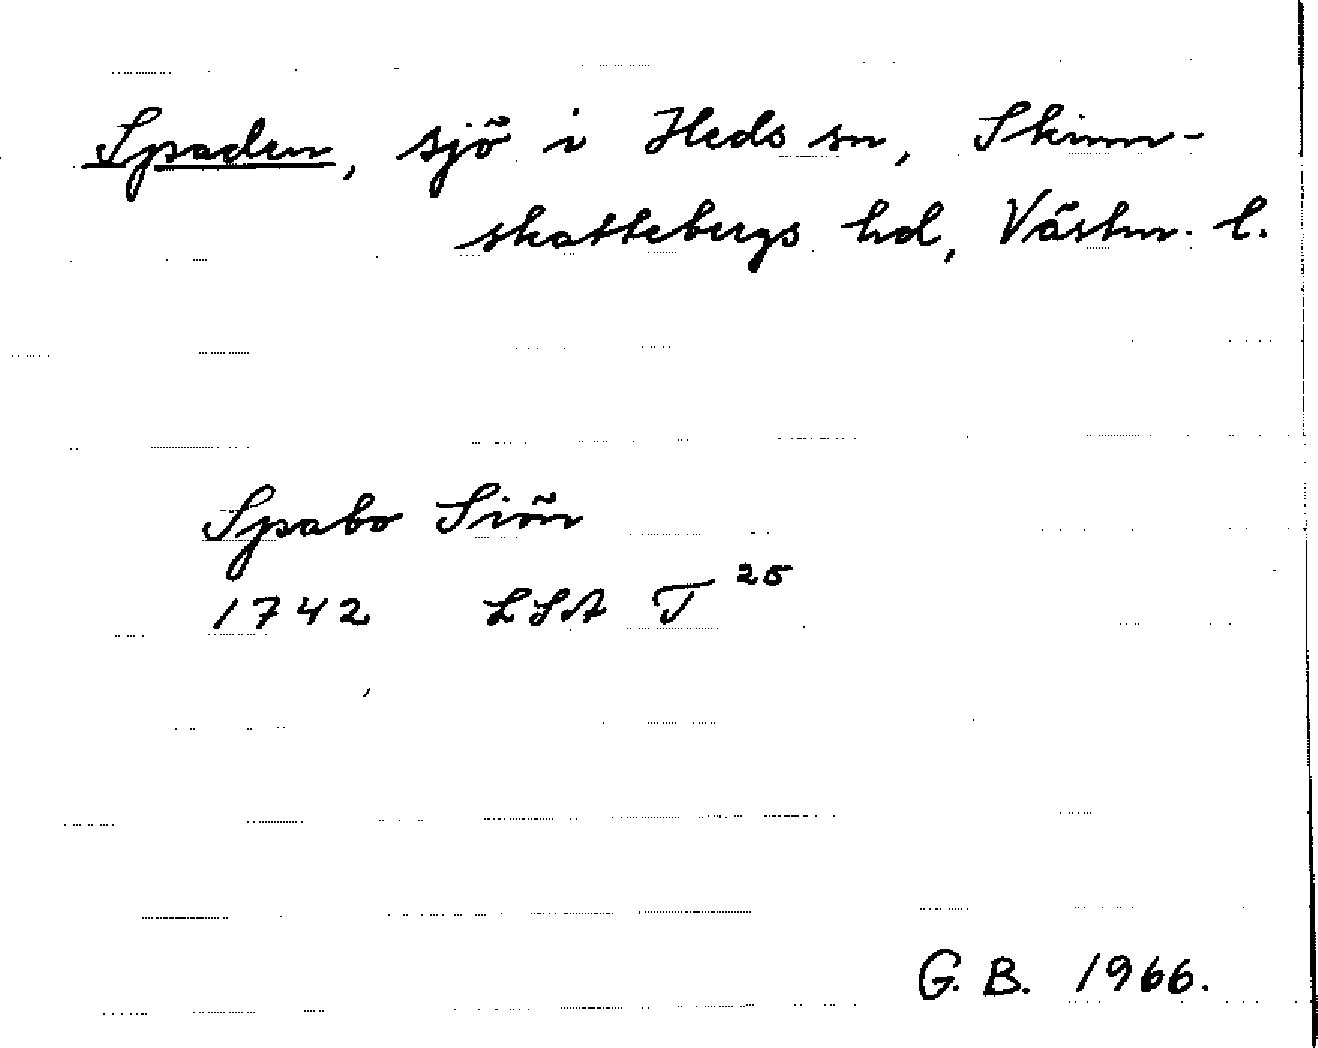 Spaden, sjö i Heds sn, Skinn-
skattebergs hd, Västm. l.
Spabo Siön
1742 LSA T 25
G. B. 1966.